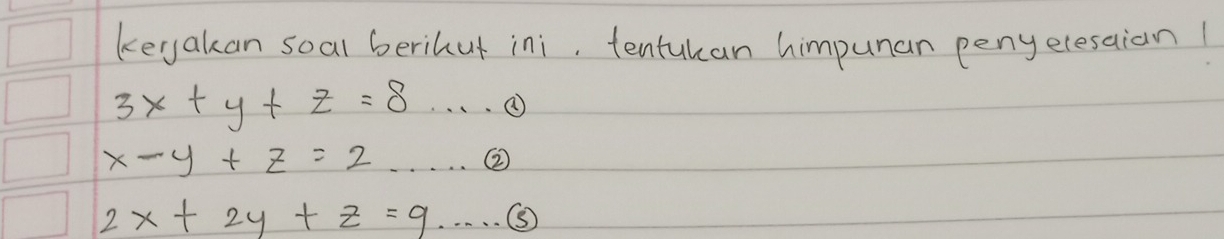 kerjakan soal berikut ini. tentukan himpunan penyelesaian!
3x + y + z = 8 .... ①
x - y + z = 2 ..... ②
2x + 2y + z = 9 ..... ③